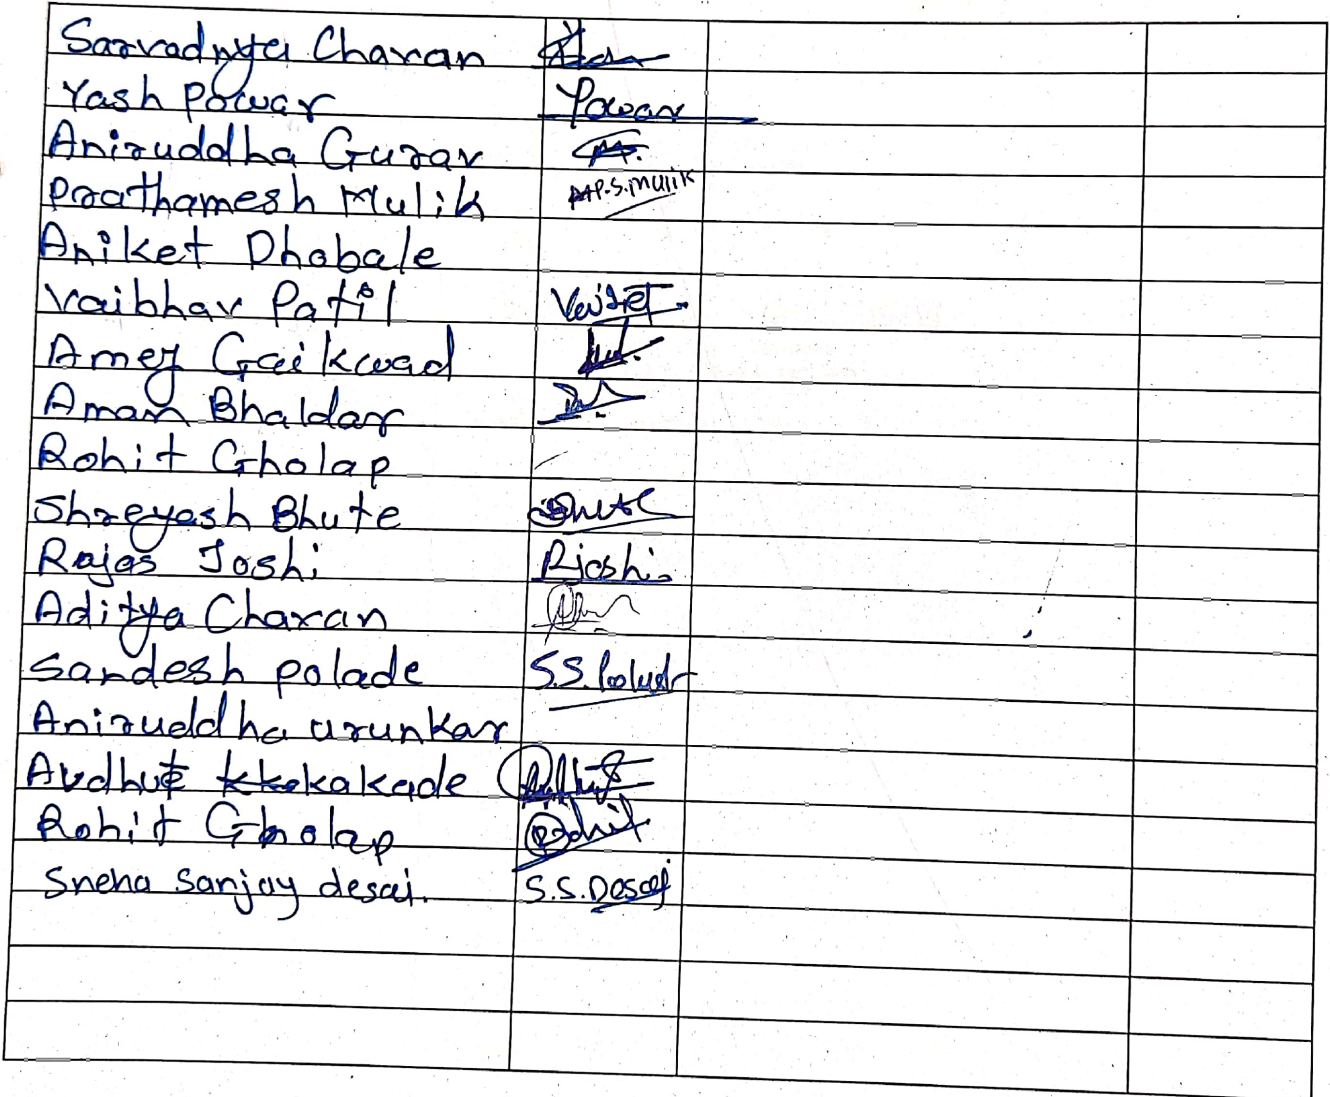 Sarvadnya Chavan
Yash Powar Powar
Aniruddha Gurav
Prathamesh Mulik P.S.Mulik
Aniket Dhobale
Vaibhav Patil
Amey Gaikwad
Aman Bhaldar
Rohit Gholap
Shreyash Bhute Bhute
Rajas Joshi RJoshi.
Aditya Chavan
Sandesh polade S.S.Polade
Aniruddha urunkar
Avdhut kakade
Rohit Gholap Rohit
Sneha Sanjay desai. S.S.Desai